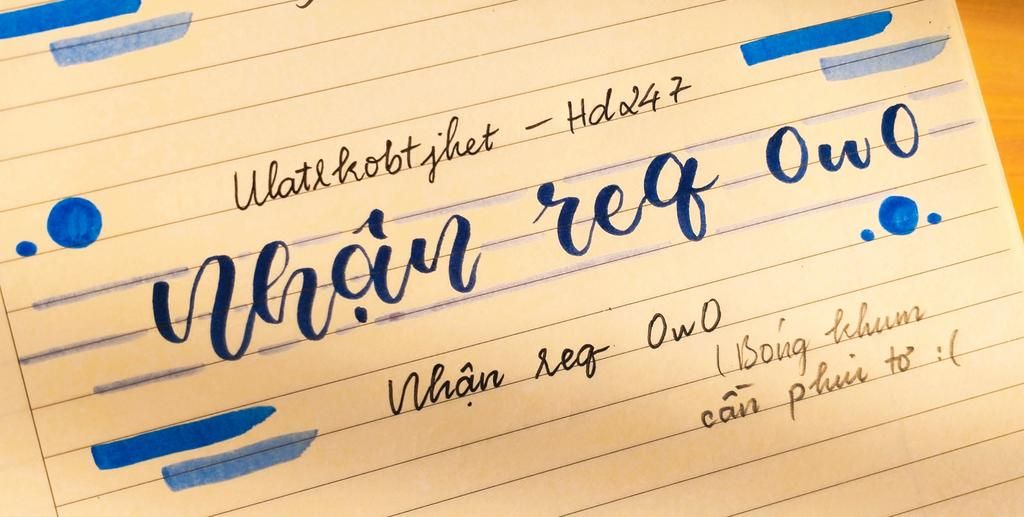 Ulatrkobtjhet - Hd247
Nhận req OwO
Nhận req OwO
(Bóng khum
cần phui tờ :(